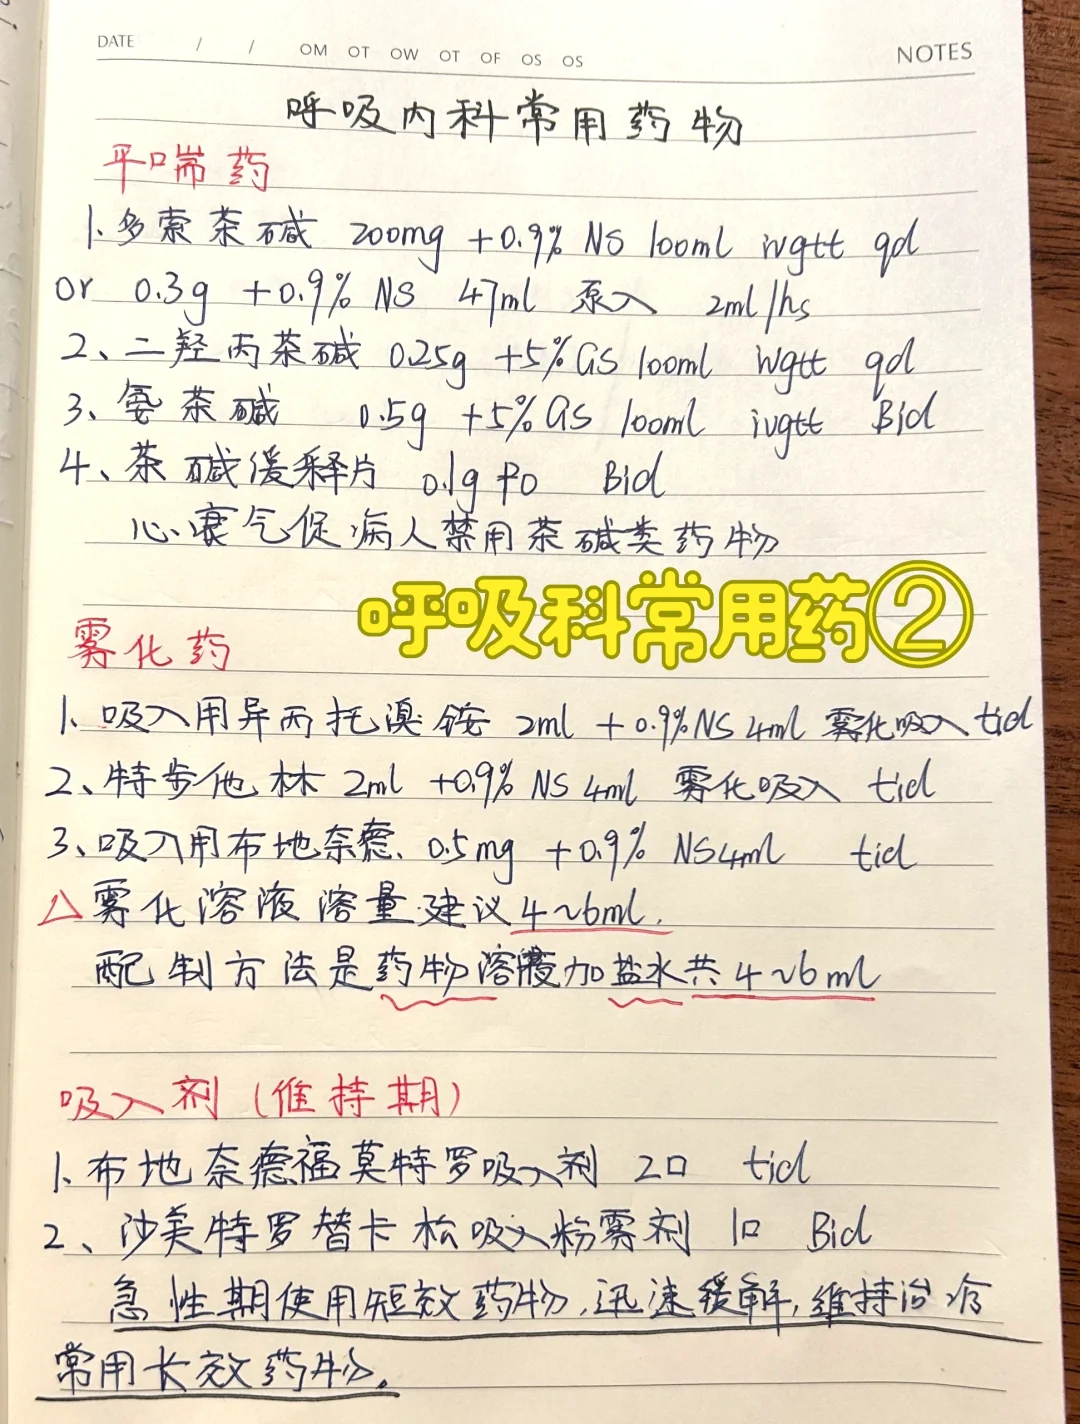 DATE / / OM OT OW OT OF OS OS NOTES
呼吸内科常用药物
平喘药
1.多索茶碱 200mg +0.9% NS 100ml ivgtt qd
or 0.3g +0.9% NS 47ml 泵入 2ml/hs
2、二羟丙茶碱 0.25g +5%GS 100ml ivgtt qd
3、氨茶碱 0.5g +5%GS 100ml ivgtt Bid
4、茶碱缓释片 0.1g po Bid
心衰气促病人禁用茶碱类药物
呼吸科常用药②
雾化药
1.吸入用异丙托溴铵 2ml +0.9%NS 4ml 雾化吸入 tid
2、特步他林 2ml +0.9% NS 4ml 雾化吸入 tid
3、吸入用布地奈德 0.5mg +0.9% NS4ml tid
△雾化溶液溶量建议4~6ml.
配制方法是药物溶液加盐水共4~6ml
吸入剂(维持期)
1.布地奈德福莫特罗吸入剂 2口 tid
2、沙美特罗替卡松吸入粉雾剂 1口 Bid
急性期使用短效药物,迅速缓解,维持治疗
常用长效药物.